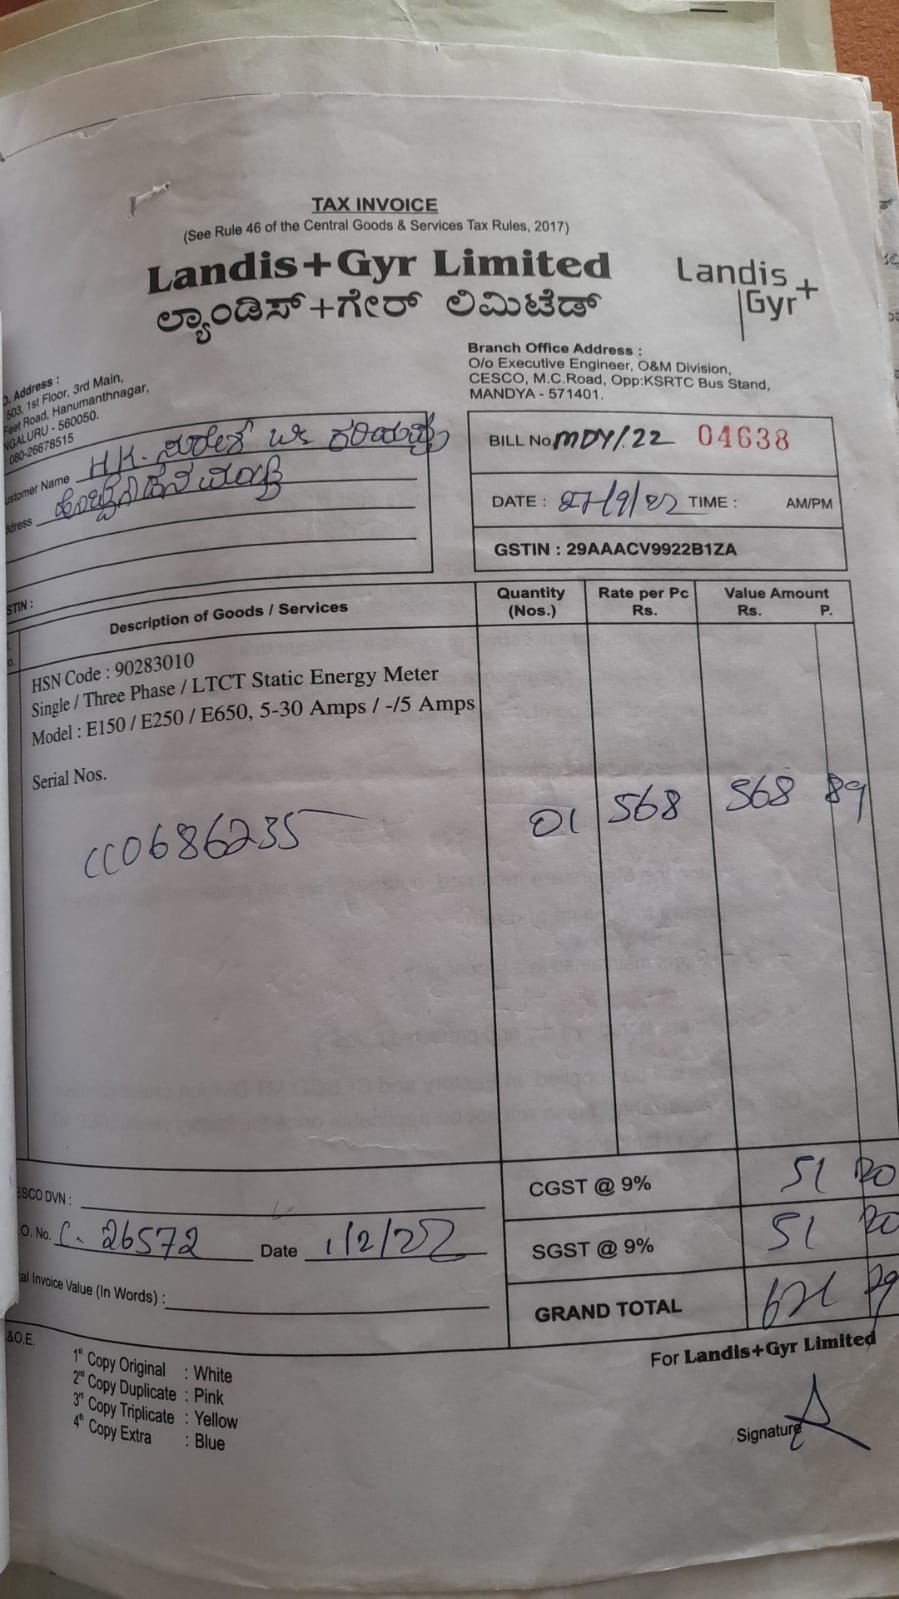 TAX INVOICE
(See Rule 46 of the Central Goods & Services Tax Rules, 2017)
Landis+Gyr Limited
ಲ್ಯಾಂಡಿಸ್+ಗೇರ್ ಲಿಮಿಟೆಡ್
Landis+
Gyr
Address :
503, 1st Floor, 3rd Main,
Feet Road, Hanumanthnagar,
NGALURU - 560050.
080-26678515
Branch Office Address :
O/o Executive Engineer, O&M Division,
CESCO, M.C.Road, Opp:KSRTC Bus Stand,
MANDYA - 571401.
ustomer Name H.K.
dress
STIN :
BILL No MDY/.22 04638
DATE : 27/9/22 TIME : AM/PM
GSTIN : 29AAACV9922B1ZA
Description of Goods / Services
Quantity (Nos.)
Rate per Pc Rs.
Value Amount Rs. P.
HSN Code : 90283010
Single / Three Phase / LTCT Static Energy Meter
Model : E150 / E250 / E650, 5-30 Amps / -/5 Amps
Serial Nos.
CC0686235 01 568 568 89
ESCO DVN :
O. No. C. 26572 Date 1/2/22
al Invoice Value (In Words) :
CGST @ 9% 51 20
SGST @ 9% 51 20
GRAND TOTAL 671 29
&O.E.
1st Copy Original : White
2nd Copy Duplicate : Pink
3rd Copy Triplicate : Yellow
4th Copy Extra : Blue
For Landis+Gyr Limited
Signature